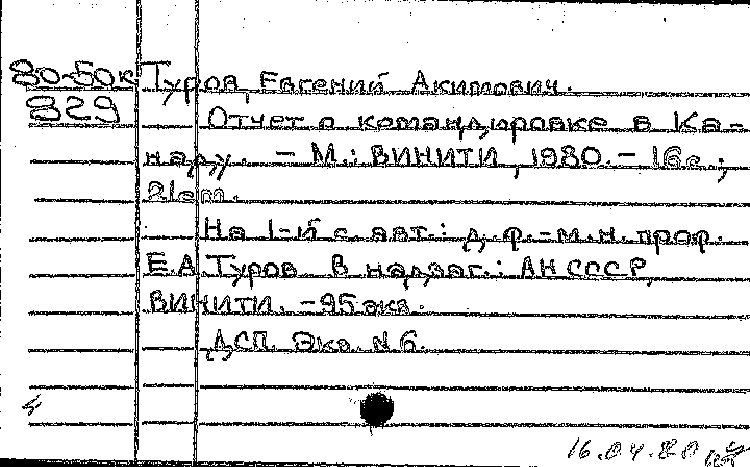 80-50к Туров, Евгений Акимович.
829 Отчет о командировке в Ка-
наду. – М.: ВИНИТИ, 1980. – 16с.;
21см.
На 1-й с. авт.: д.ф.-м.н. проф.
Е.А. Туров В надзаг.: АН СССР,
ВИНИТИ. – 95 экз.
ДСП. Экз. N 6.
4
16.04.80